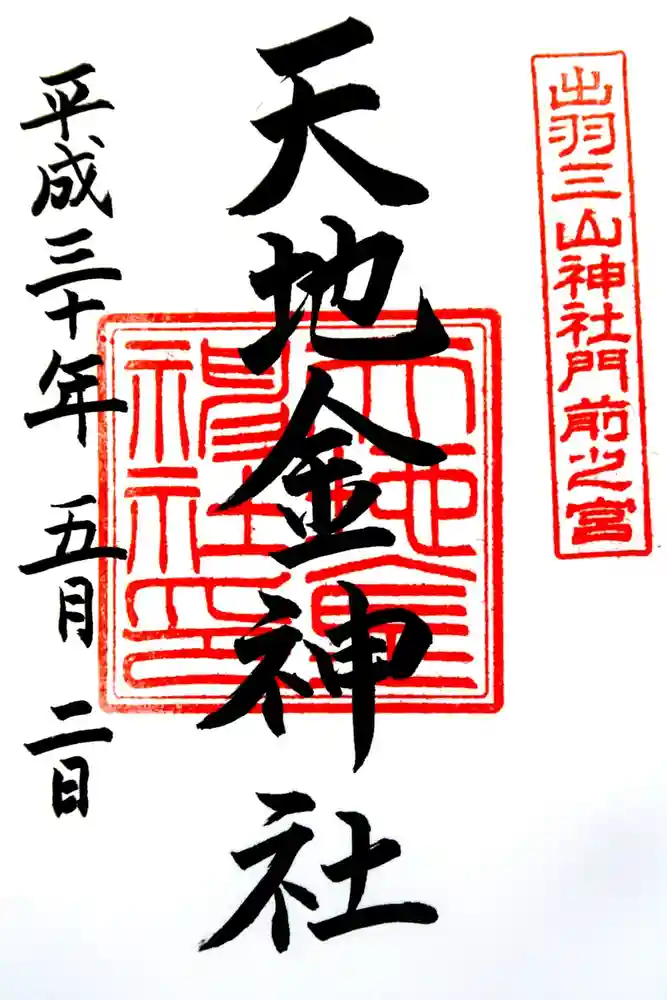 出羽三山神社門前之宮
天地金神社
天地金神社印
平成三十年 五月 二日